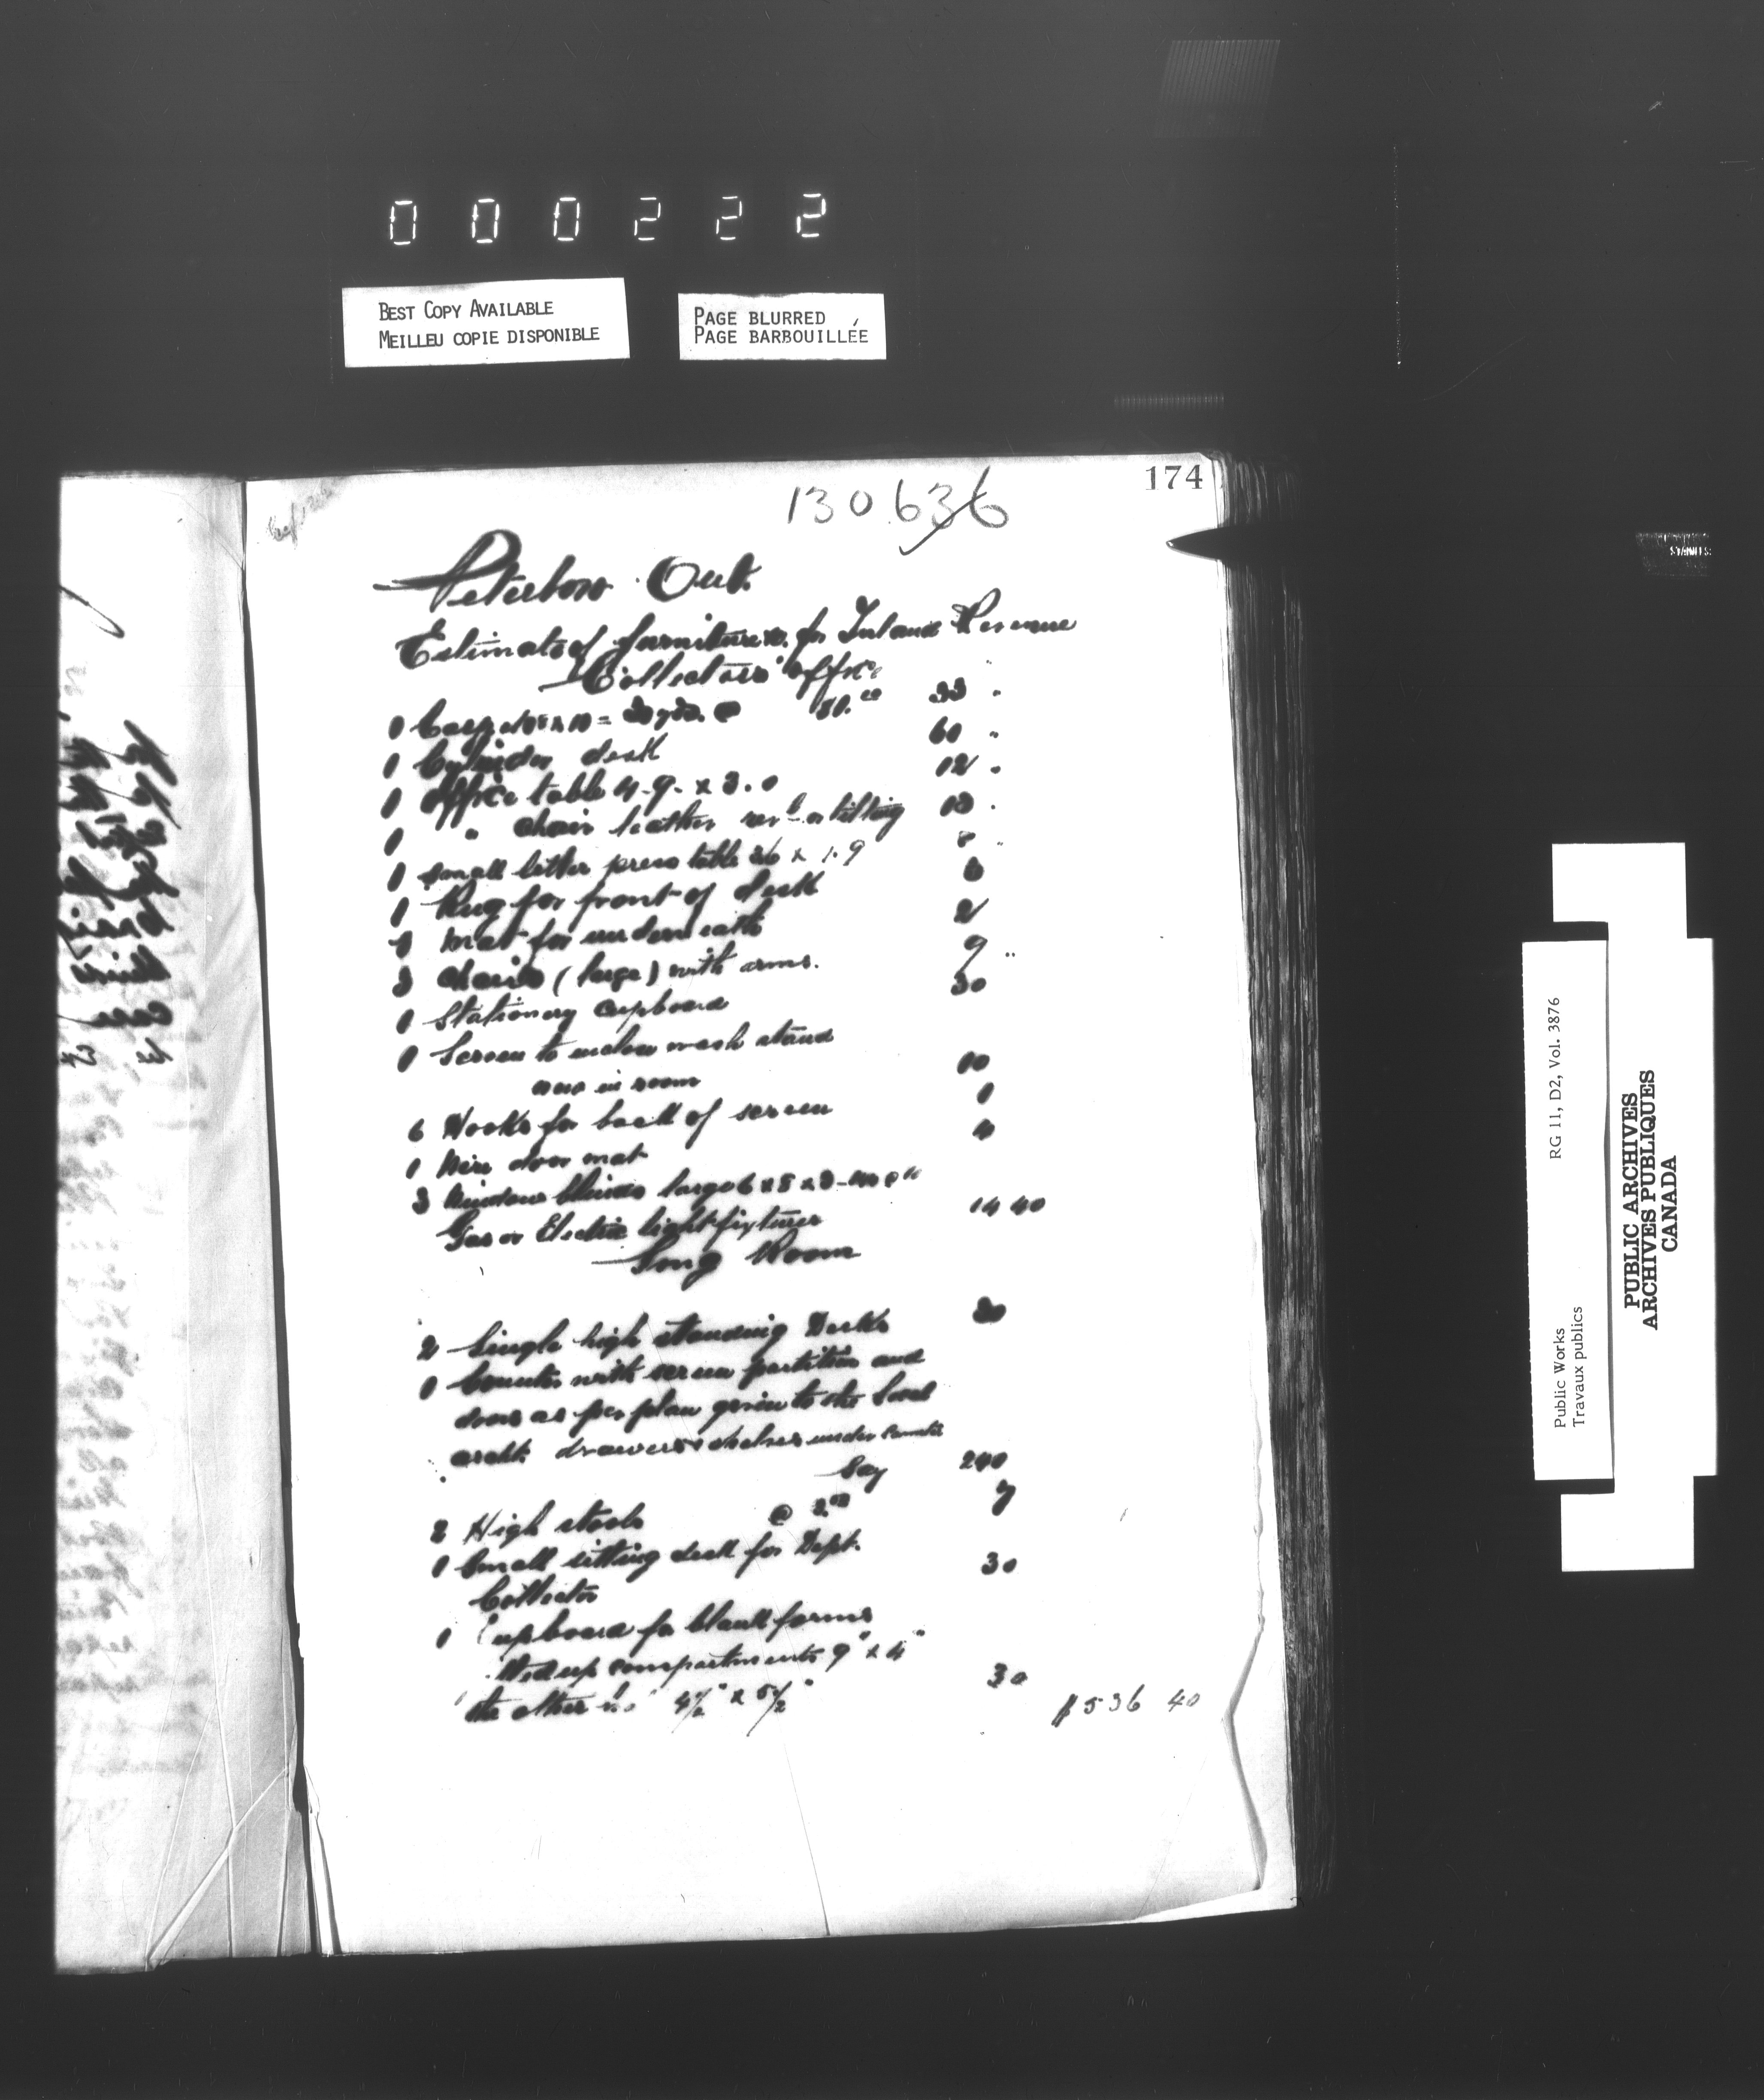 000222
BEST COPY AVAILABLE
MEILLEU COPIE DISPONIBLE
PAGE BLURRED
PAGE BARBOUILLÉE
174
130636
Peterboro Ont.
Estimate of furniture &c. for Inland Revenue
Collectors' office
1 Carpet = yds. @ 33
1 Cylinder desk 60
1 office table 4-9- x 3.0 12
1 " chair leather tilting
1 small letter press table x 1.9
1 Rug for front of desk 6
1 mat for underneath 2
3 chairs (large) with arms. 9
1 Stationery cupboard 30
1 Screen to enclose wash stand
now in room 10
6 Hooks for back of screen 1
1 Wire door mat 4
3 Window blinds large 6 x 5 x 3
Gas or Electric light fixtures 14 40
Long Room
2 Single high standing Desks
1 Counter with screen partition and
doors as per plan given to the local
archt. drawers & shelves under counter
Say 240
2 High stools @ 7
1 Small sitting desk for Dept. 30
Collector
1 Cupboard for blank forms
compartments 9" x 4"
the other 4½" x 5½" 30
$536 40
RG 11, D2, Vol. 3876
Public Works
Travaux publics
PUBLIC ARCHIVES
ARCHIVES PUBLIQUES
CANADA